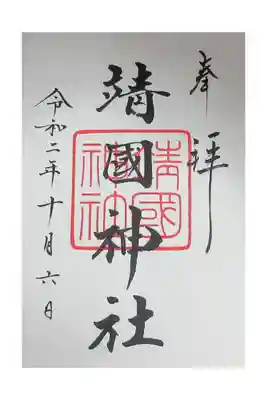 奉拝
靖國神社
靖國神社
令和二年十月六日